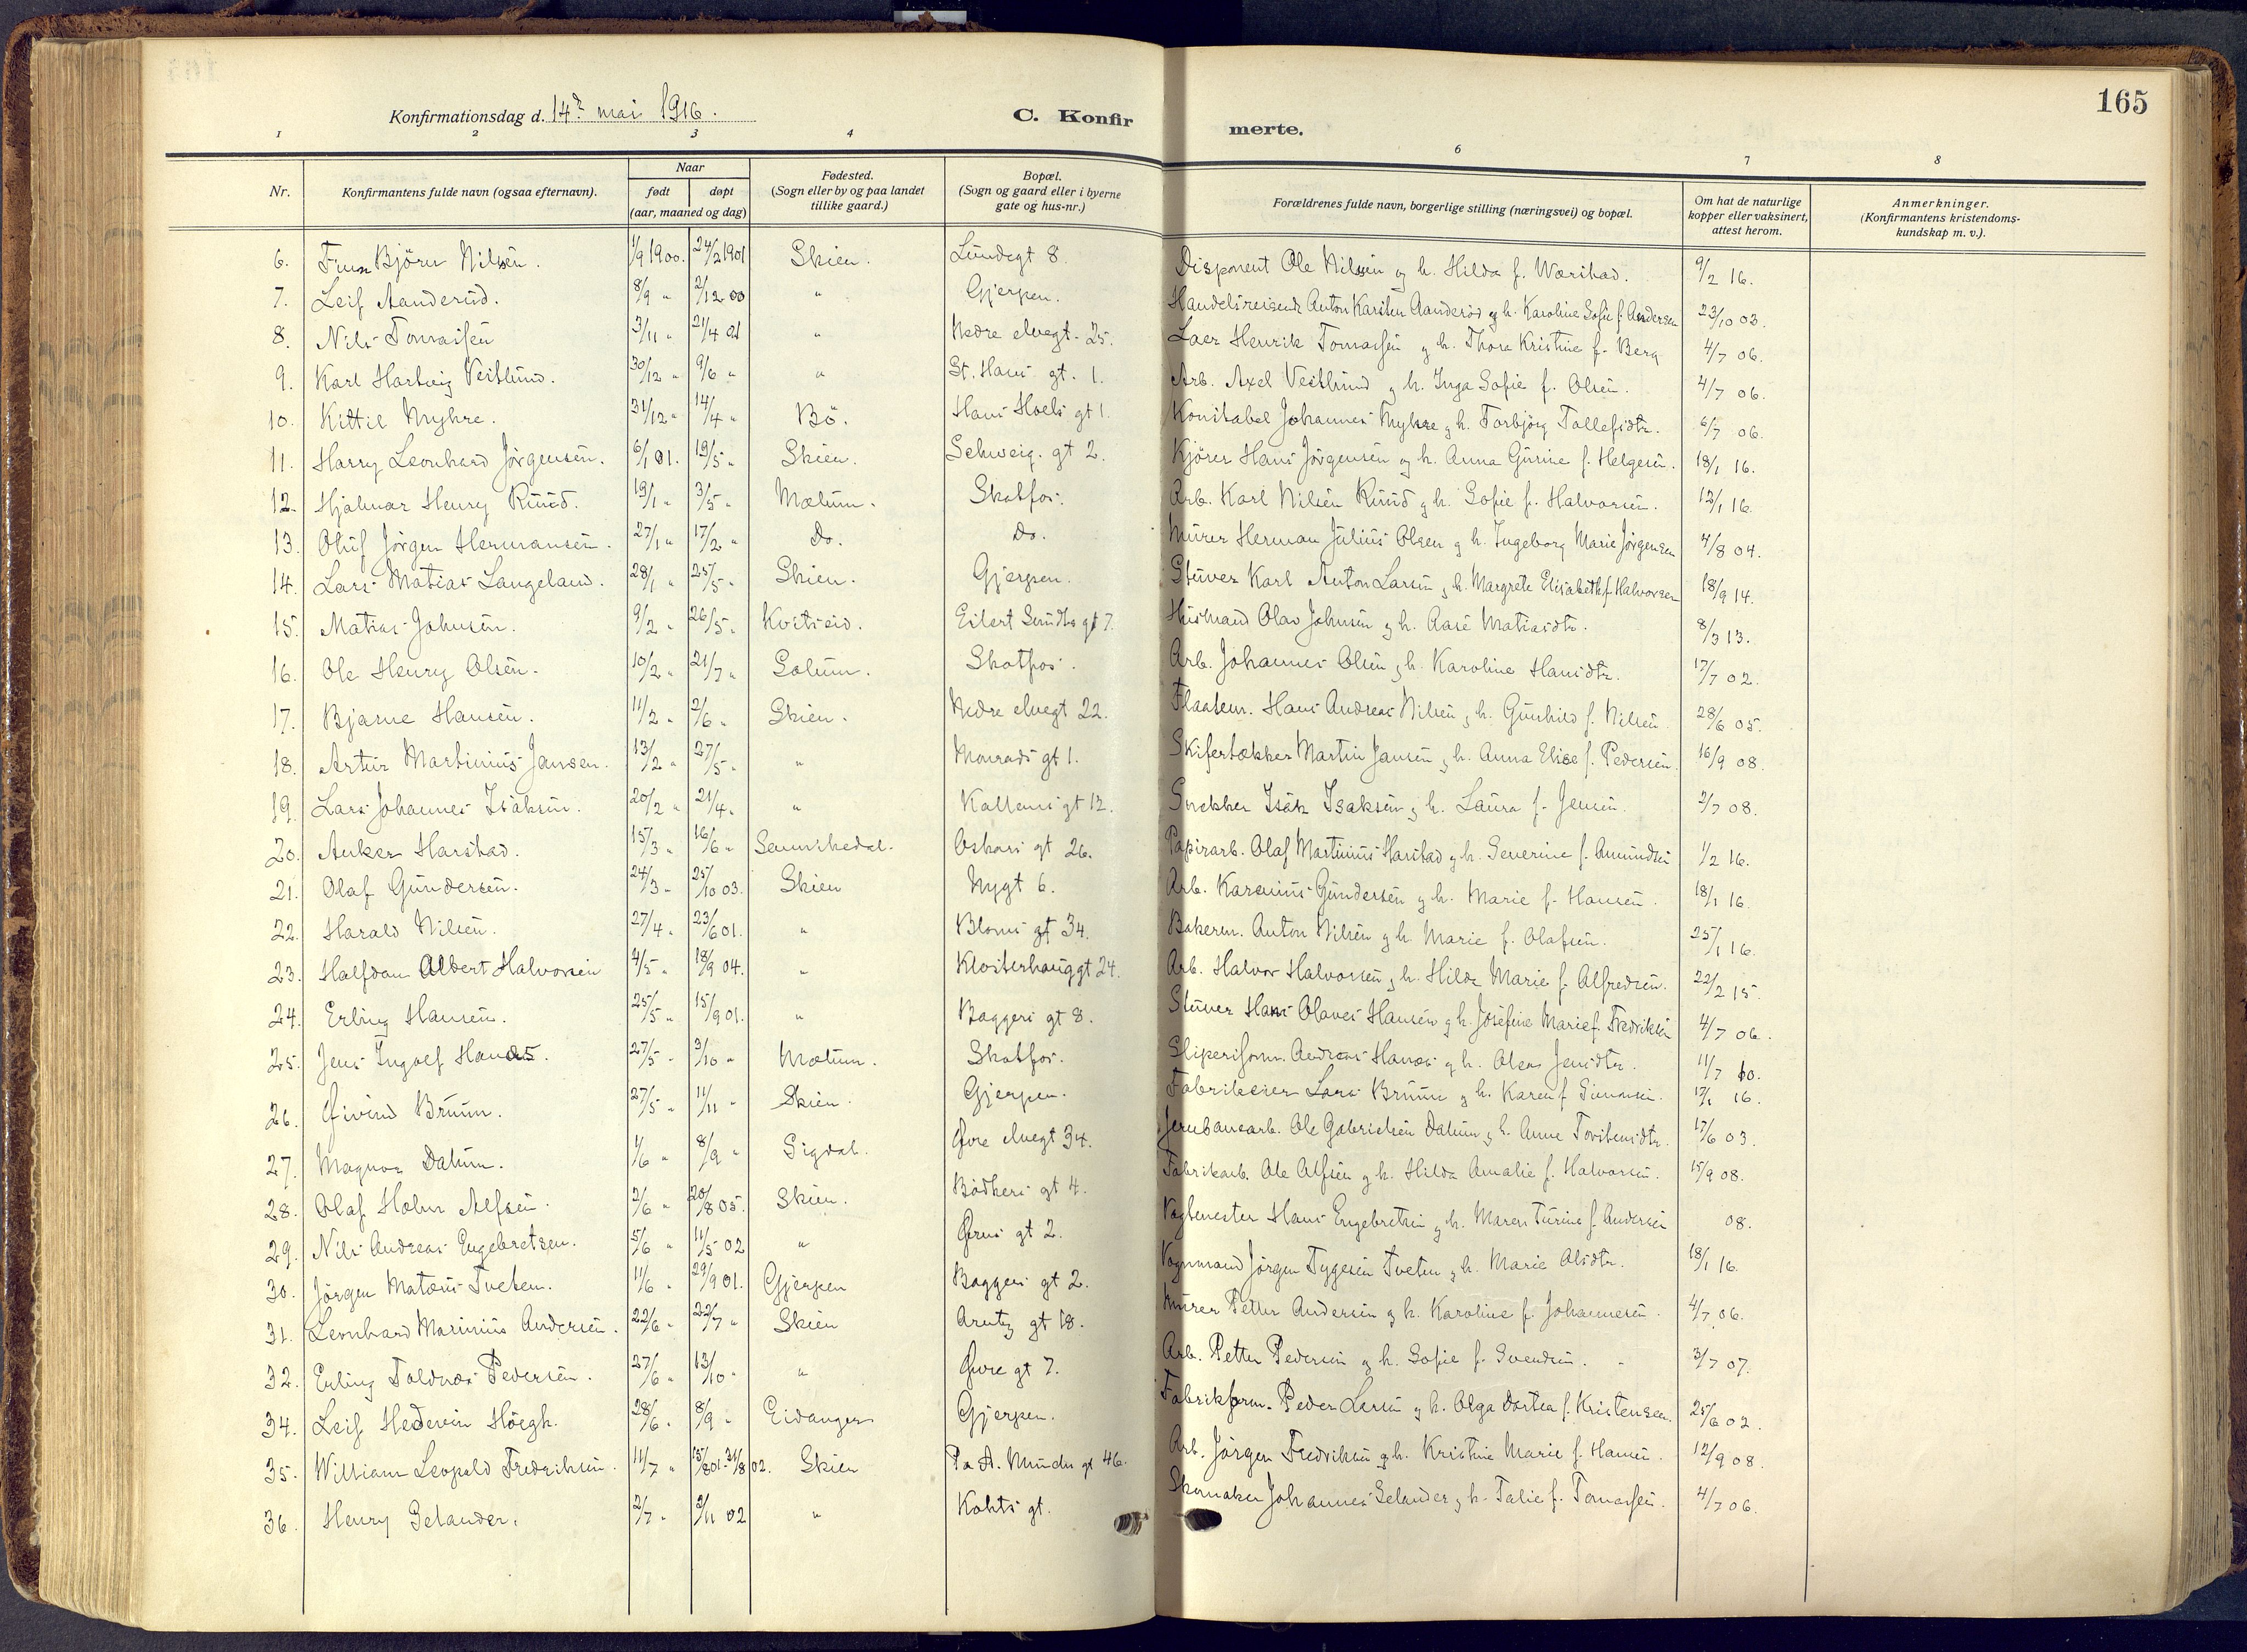 165
Konfirmationsdag d. 14de mai 1916.
C. Konfirmerte.
1 2 3 4 6 7 8
Nr. Konfirmantens fulde navn (ogsaa efternavn). Naar født døpt (aar, maaned og dag) Fødested. (Sogn eller by og paa landet tillike gaard.) Bopæl. (Sogn og gaard eller i byerne gate og hus-nr.) Forældrenes fulde navn, borgerlige stilling (næringsvei) og bopæl. Om hat de naturlige kopper eller vaksinert, attest herom. Anmerkninger. (Konfirmantens kristendomskundskap m. v.).
6. Björn Nilsen. 1/9 1900. 24/2 1901 Skien. Lundegt 8. Disponent Ole Nilsen og h. Hilda f. Wærstad. 9/2 16.
7. Leif Aanderud. 8/9 " 2/12 00 " Gjerpen. Handelsreisende Anton Karsten Aanderöd og h. Karoline Sofie f. Andersen 23/10 03.
8. Nils Tomassen 3/11 " 21/4 01 " Nedre elvegt. 25. Laer Henrik Tomassen og h. Thora Kristine f. Berg 4/7 06.
9. Karl Hartvig Vestlund. 30/12 " 9/6 " " St. Hans gt. 1. Arb. Axel Vestlund og h. Inga Sofie f. Olsen. 4/7 06.
10. Kittil Myhre. 31/12 " 14/4 " Bö. Hans Hoels gt 1. Konstabel Johannes Myhre og h. Torbjörg Tollefsdtr. 6/7 06.
11. Harry Leonhard Jörgensen. 6/1 01. 19/5 " Skien. Schweig. gt 2. Kjörer Hans Jörgensen og h. Anna Gurine f. Helgesen. 18/1 16.
12. Hjalmar Henry Ruud. 19/1 " 3/5 " Mælum. Skotfos. Arb. Karl Nilsen Ruud og h. Sofie f. Halvorsen. 13/1 16.
13. Oluf Jörgen Hermansen. 27/1 " 17/2 " Do. Do. Murer Herman Julius Olsen og h. Ingeborg Marie Jörgensen 4/8 04.
14. Lars Matias Langeland. 28/1 " 25/5 " Skien. Gjerpen. Stuver Karl Anton Larsen og h. Margrete Elisabeth f. Halvorsen 18/9 14.
15. Matias Johnsen. 9/2 " 26/5 " Kvitseid. Eilert Sundts gt 7. Husmand Olav Johnsen og h. Aase Matiasdtr. 8/3 13.
16. Ole Henry Olsen. 10/2 " 21/7 " Solum. Skotfos. Arb. Johannes Olsen og h. Karoline Hansdtr. 17/7 02.
17. Bjarne Hansen. 11/2 " 2/6 " Skien. Nedre elvegt 22. Flaatem. Hans Andreas Nilsen og h. Gunhild f. Nilsen. 28/6 05.
18. Artur Martinius Jansen. 13/2 " 27/5 " " Monrads gt 1. Skifertækker Martin Jansen og h. Anna Elise f. Pedersen. 16/9 08.
19. Lars Johannes Isaksen. 20/2 " 21/4 " " Kattens gt 12. Snekker Isak Isaksen og h. Laura f. Jensen. 2/7 08.
20. Anker Harstad. 15/3 " 16/6 " Sannikedal. Oskars gt 26. Papirarb. Olaf Martinius Harstad og h. Severine f. Amundsen 1/2 16.
21. Olaf Gundersen. 24/3 " 25/10 03. Skien Nygt 6. Arb. Karenius Gundersen og h. Marie f. Hansen. 18/1 16.
22. Harald Nilsen. 27/4 " 23/6 01. " Bloms gt 34. Bakerm. Anton Nilsen og h. Marie f. Olafsen. 25/1 16.
23. Halfdan Albert Halvorsen 4/5 " 18/9 04. " Klosterhauggt 24. Arb. Halvor Halvorsen og h. Hilda Marie f. Alfredsen. 22/2 15.
24. Erling Hansen. 25/5 " 15/9 01. " Baggers gt 8. Stuver Hans Olaves Hansen og h. Josefine Marie f. Fredriksen 4/7 06.
25. Jens Ingolf 27/5 " 3/10 " Mælum. Skotfos. Sliperiform. Andreas og h. Olea Jensdtr. 11/7 10.
26. Øivind Bruun. 27/5 " 11/11 " Skien. Gjerpen. Fabrikeier Lars Bruun og h. Karen f. Simonsen. 17/1 16.
27. Magnar Dalum. 1/6 " 8/9 " Sigdal. Øvre elvegt 34. Jernbanearb. Ole Gabrielsen Dalum og h. Anne Torstensdtr. 17/6 03.
28. Olaf Holm Alfsen. 2/6 " 20/8 05. Skien. Bödkers gt 4. Fabrikarb. Ole Alfsen og h. Hilda Amalie f. Halvorsen. 15/9 08.
29. Nils Andreas Engebretsen. 5/6 " 11/5 02 " Ørns gt 2. Vagtmester Hans Engebretsen og h. Maren Turine f. Andersen 08.
30. Jörgen Matæus Tveten. 11/6 " 29/9 01. Gjerpen Baggers gt 2. Vognmand Jörgen Tygesen Tveten og h. Marie Olsdtr. 18/1 16.
31. Leonhard Marinius Andersen. 22/6 " 22/7 " Skien Arntz gt 18. Murer Petter Andersen og h. Karoline f. Johannesen. 4/7 06.
32. Erling Toldnæs Pedersen. 27/6 " 13/10 " " Øvre gt 7. Arb. Petter Pedersen og h. Sofie f. Svendsen. 3/7 07.
34. Leif Hedevin Höegh. 28/6 " 8/9 " Eidanger Gjerpen. Fabrikform. Peder Larsen og h. Olga Dortea f. Kristensen. 25/6 02.
35. William Leopold Fredriksen. 11/7 " 15/8 01. 31/8 02. Skien P. A. Munchs gt 46. Arb. Jörgen Fredriksen og h. Kristine Marie f. Hansen. 12/9 08.
36. Henry Selander. 2/7 " 2/11 02 " Kohts gt. Skomaker Johannes Selander og h. Talie f. Tomassen. 4/7 06.